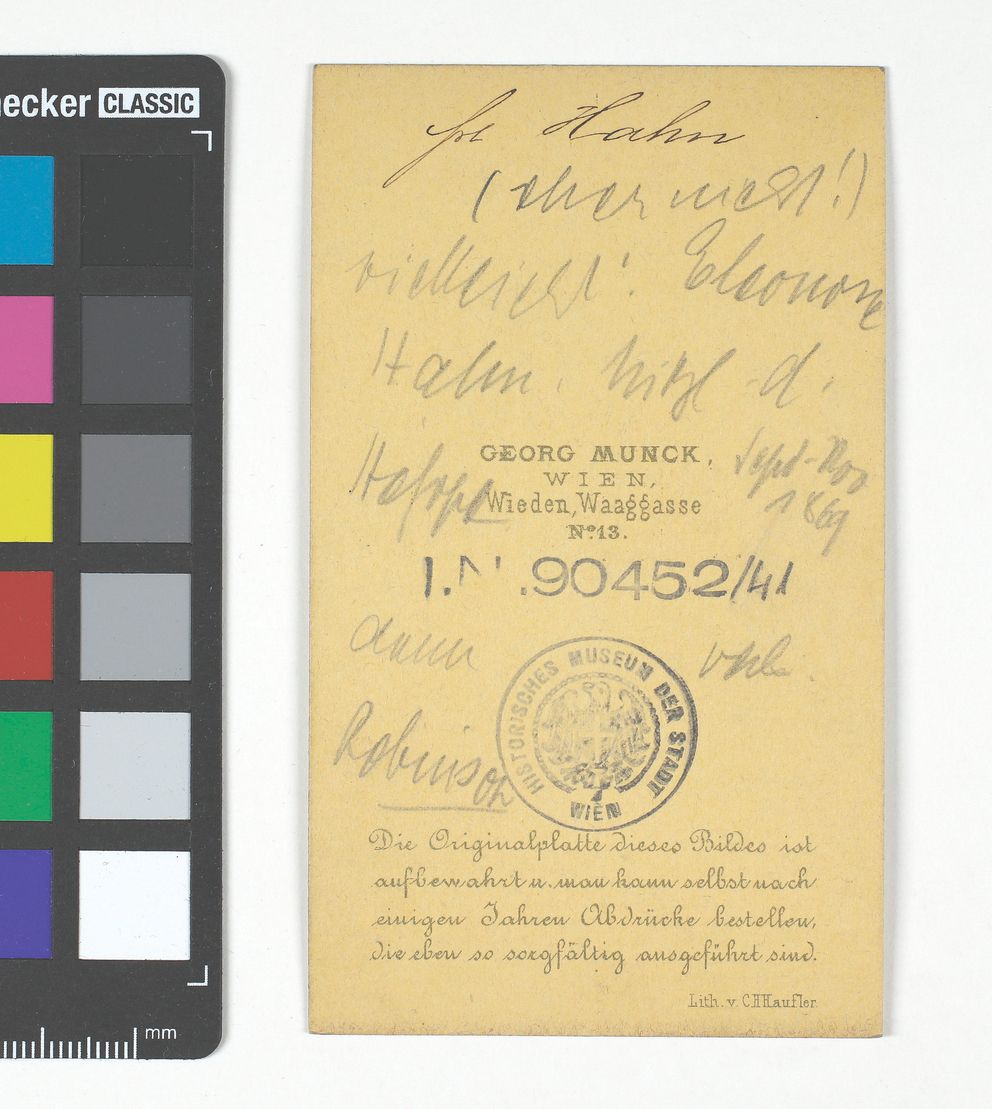 ecker CLASSIC
Frl Hahn
(aber nicht!)
vielleicht: Eleonore
Hahn. Mitgl. d.
Hofoper Sept-Nov
1869
GEORG MUNCK,
WIEN,
Wieden, Waaggasse
No 13.
I.N. 90452/41
dann verh.
Robinson
HISTORISCHES MUSEUM DER STADT WIEN
Die Originalplatte dieses Bildes ist
aufbewahrt u. man kann selbst nach
einigen Jahren Abdrücke bestellen,
die eben so sorgfältig ausgeführt sind.
Lith. v. C.H.Haufler.
mm